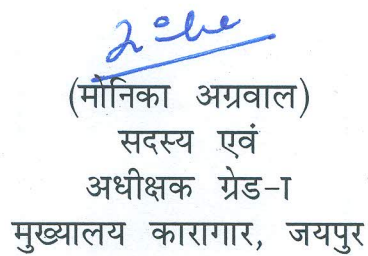 (मोनिका अग्रवाल)
सदस्य एवं
अधीक्षक ग्रेड-I
मुख्यालय कारागार, जयपुर